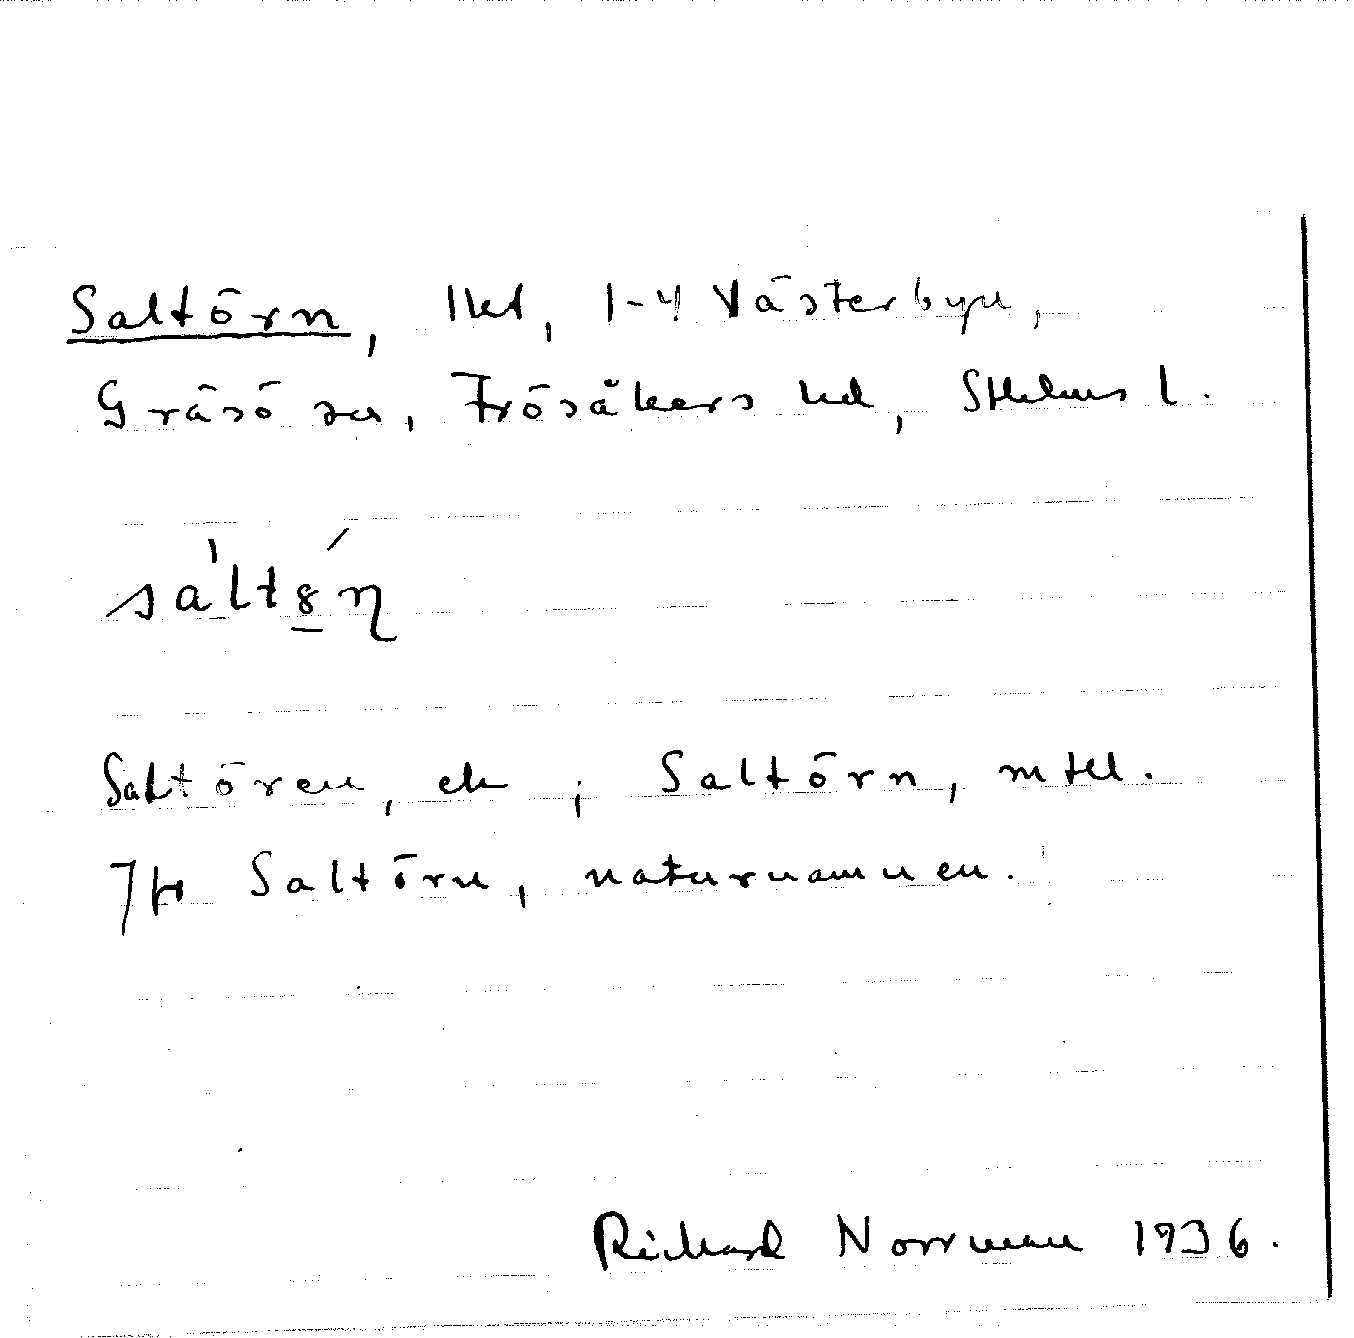 Saltörn, lht, 1-4 Västerbyn,
Gräsö sn, Frösåkers hd, Sthlms l.
sàltȣ́n̥
Saltören, ek; Saltörn, mtll.
Jfr Saltörn, naturnamnen.
Richard Norrman 1936.